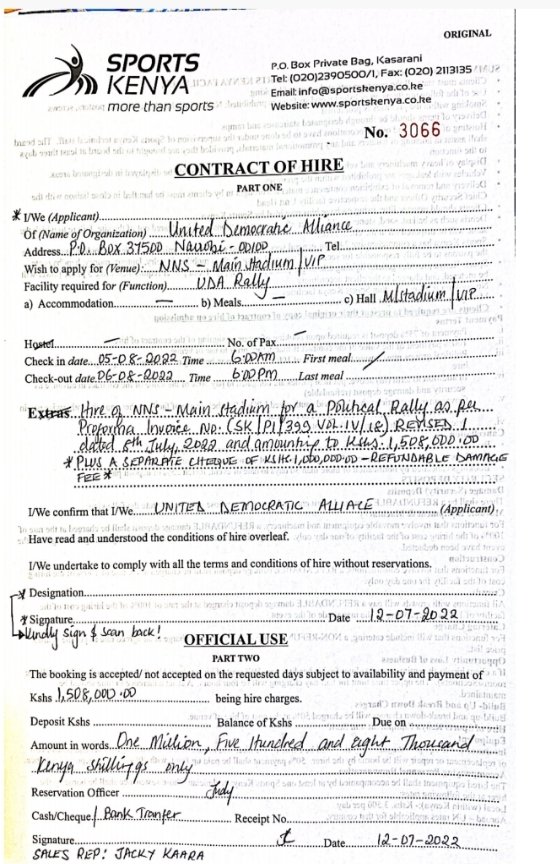 ORIGINAL
SPORTS
KENYA
more than sports
P.O. Box Private Bag, Kasarani
Tel: (020)2390500/1, Fax: (020) 2113135
Email:info@sportskenya.co.ke
Website: www.sportskenya.co.ke
No. 3066
CONTRACT OF HIRE
PART ONE
* I/We (Applicant)
Of (Name of Organization) United Democratic Alliance
Address P.O. BOX 37500 Nairobi - 00100 Tel.
Wish to apply for (Venue): NNS - Main stadium / VIP
Facility required for (Function) UDA Rally
a) Accommodation — b) Meals — c) Hall M/stadium / VIP
Hostel — No. of Pax —
Check in date 05-08-2022 Time 6:00AM First meal /
Check-out date 06-08-2022 Time 6:00PM Last meal
Extras Hire of NNS - Main stadium for a Political Rally as per
Proforma Invoice No. (SK/PI/399 VOL.IV/18) REVISED 1
dated 8th July, 2022 and amounting to Kshs. 1,508,000.00
*PLUS A SEPARATE CHEQUE OF KSHS.1,000,000.00 - REFUNDABLE DAMAGE
FEE*
I/We confirm that I/We UNITED DEMOCRATIC ALLIACE (Applicant)
Have read and understood the conditions of hire overleaf.
I/We undertake to comply with all the terms and conditions of hire without reservations.
* Designation
* Signature Date 12-07-2022
kindly sign & scan back!
OFFICIAL USE
PART TWO
The booking is accepted/ not accepted on the requested days subject to availability and payment of
Kshs 1,508,000.00 being hire charges.
Deposit Kshs Balance of Kshs Due on
Amount in words One Million, Five Hundred and eight Thousand
Kenya shillings only
Reservation Officer Judy
Cash/Cheque/ Bank Tranfer Receipt No.
Signature Date 12-07-2022
SALES REP: JACKY KAARA